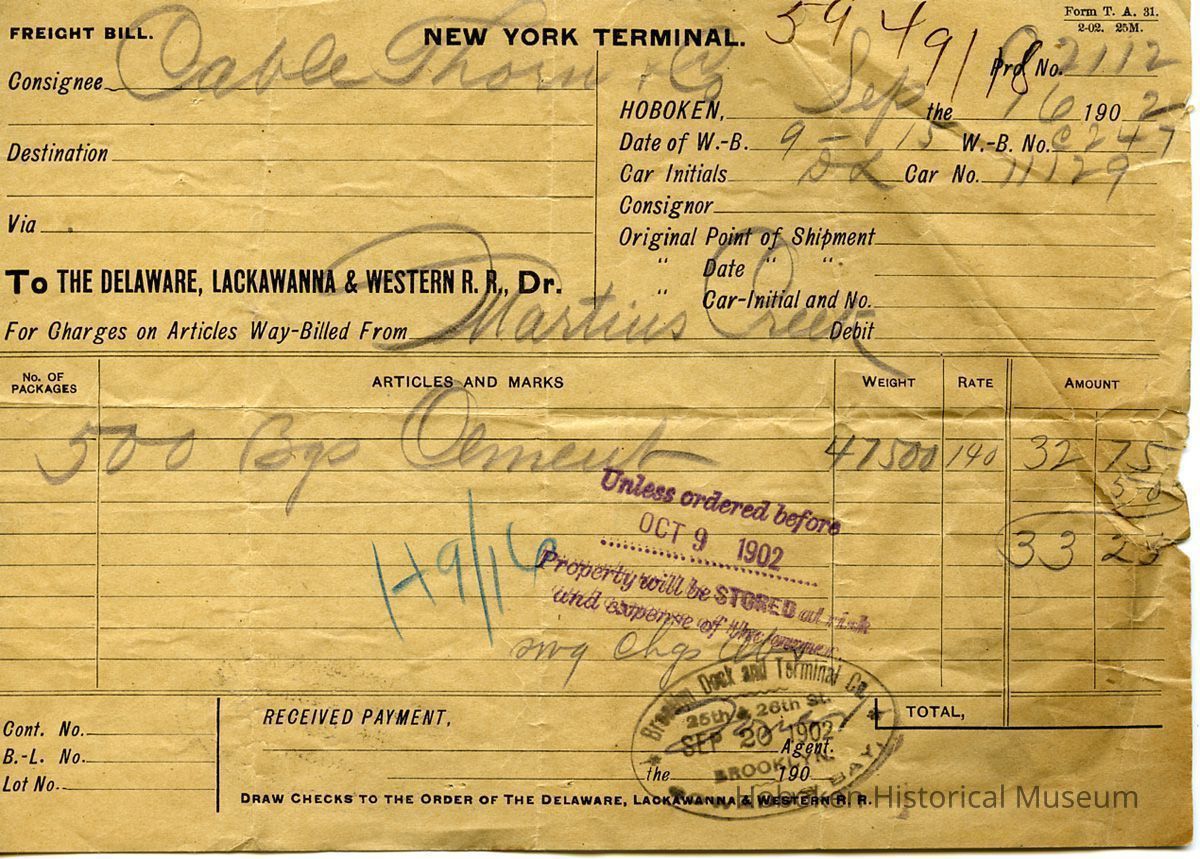 Form T. A. 31.
2-02. 25M.
FREIGHT BILL. NEW YORK TERMINAL. 59491/18
Consignee Cable Thorn & Co Pro. No. 2112
HOBOKEN, Sep the 16 1902
Destination Date of W.-B. 9-15 W.-B. No. C247
Car Initials DL Car No. 11129
Consignor
Via Original Point of Shipment
" Date " "
To THE DELAWARE, LACKAWANNA & WESTERN R. R., Dr. " Car-Initial and No.
For Charges on Articles Way-Billed From Martins Creek Debit
No. OF PACKAGES ARTICLES AND MARKS WEIGHT RATE AMOUNT
500 Bgs Cement 47500 140 32 75
50
33 25
Unless ordered before
OCT 9 1902
Property will be STORED at risk
and expense of the owner.
H 9/16
swg chgs
Brooklyn Dock and Terminal Co.
25th & 26th St.
SEP 20 1902
BROOKLYN.
GOWANUS BAY
TOTAL,
Cont. No. RECEIVED PAYMENT,
B.-L. No. Agent.
Lot No. the 190
DRAW CHECKS TO THE ORDER OF THE DELAWARE, LACKAWANNA & WESTERN R. R.
Hoboken Historical Museum